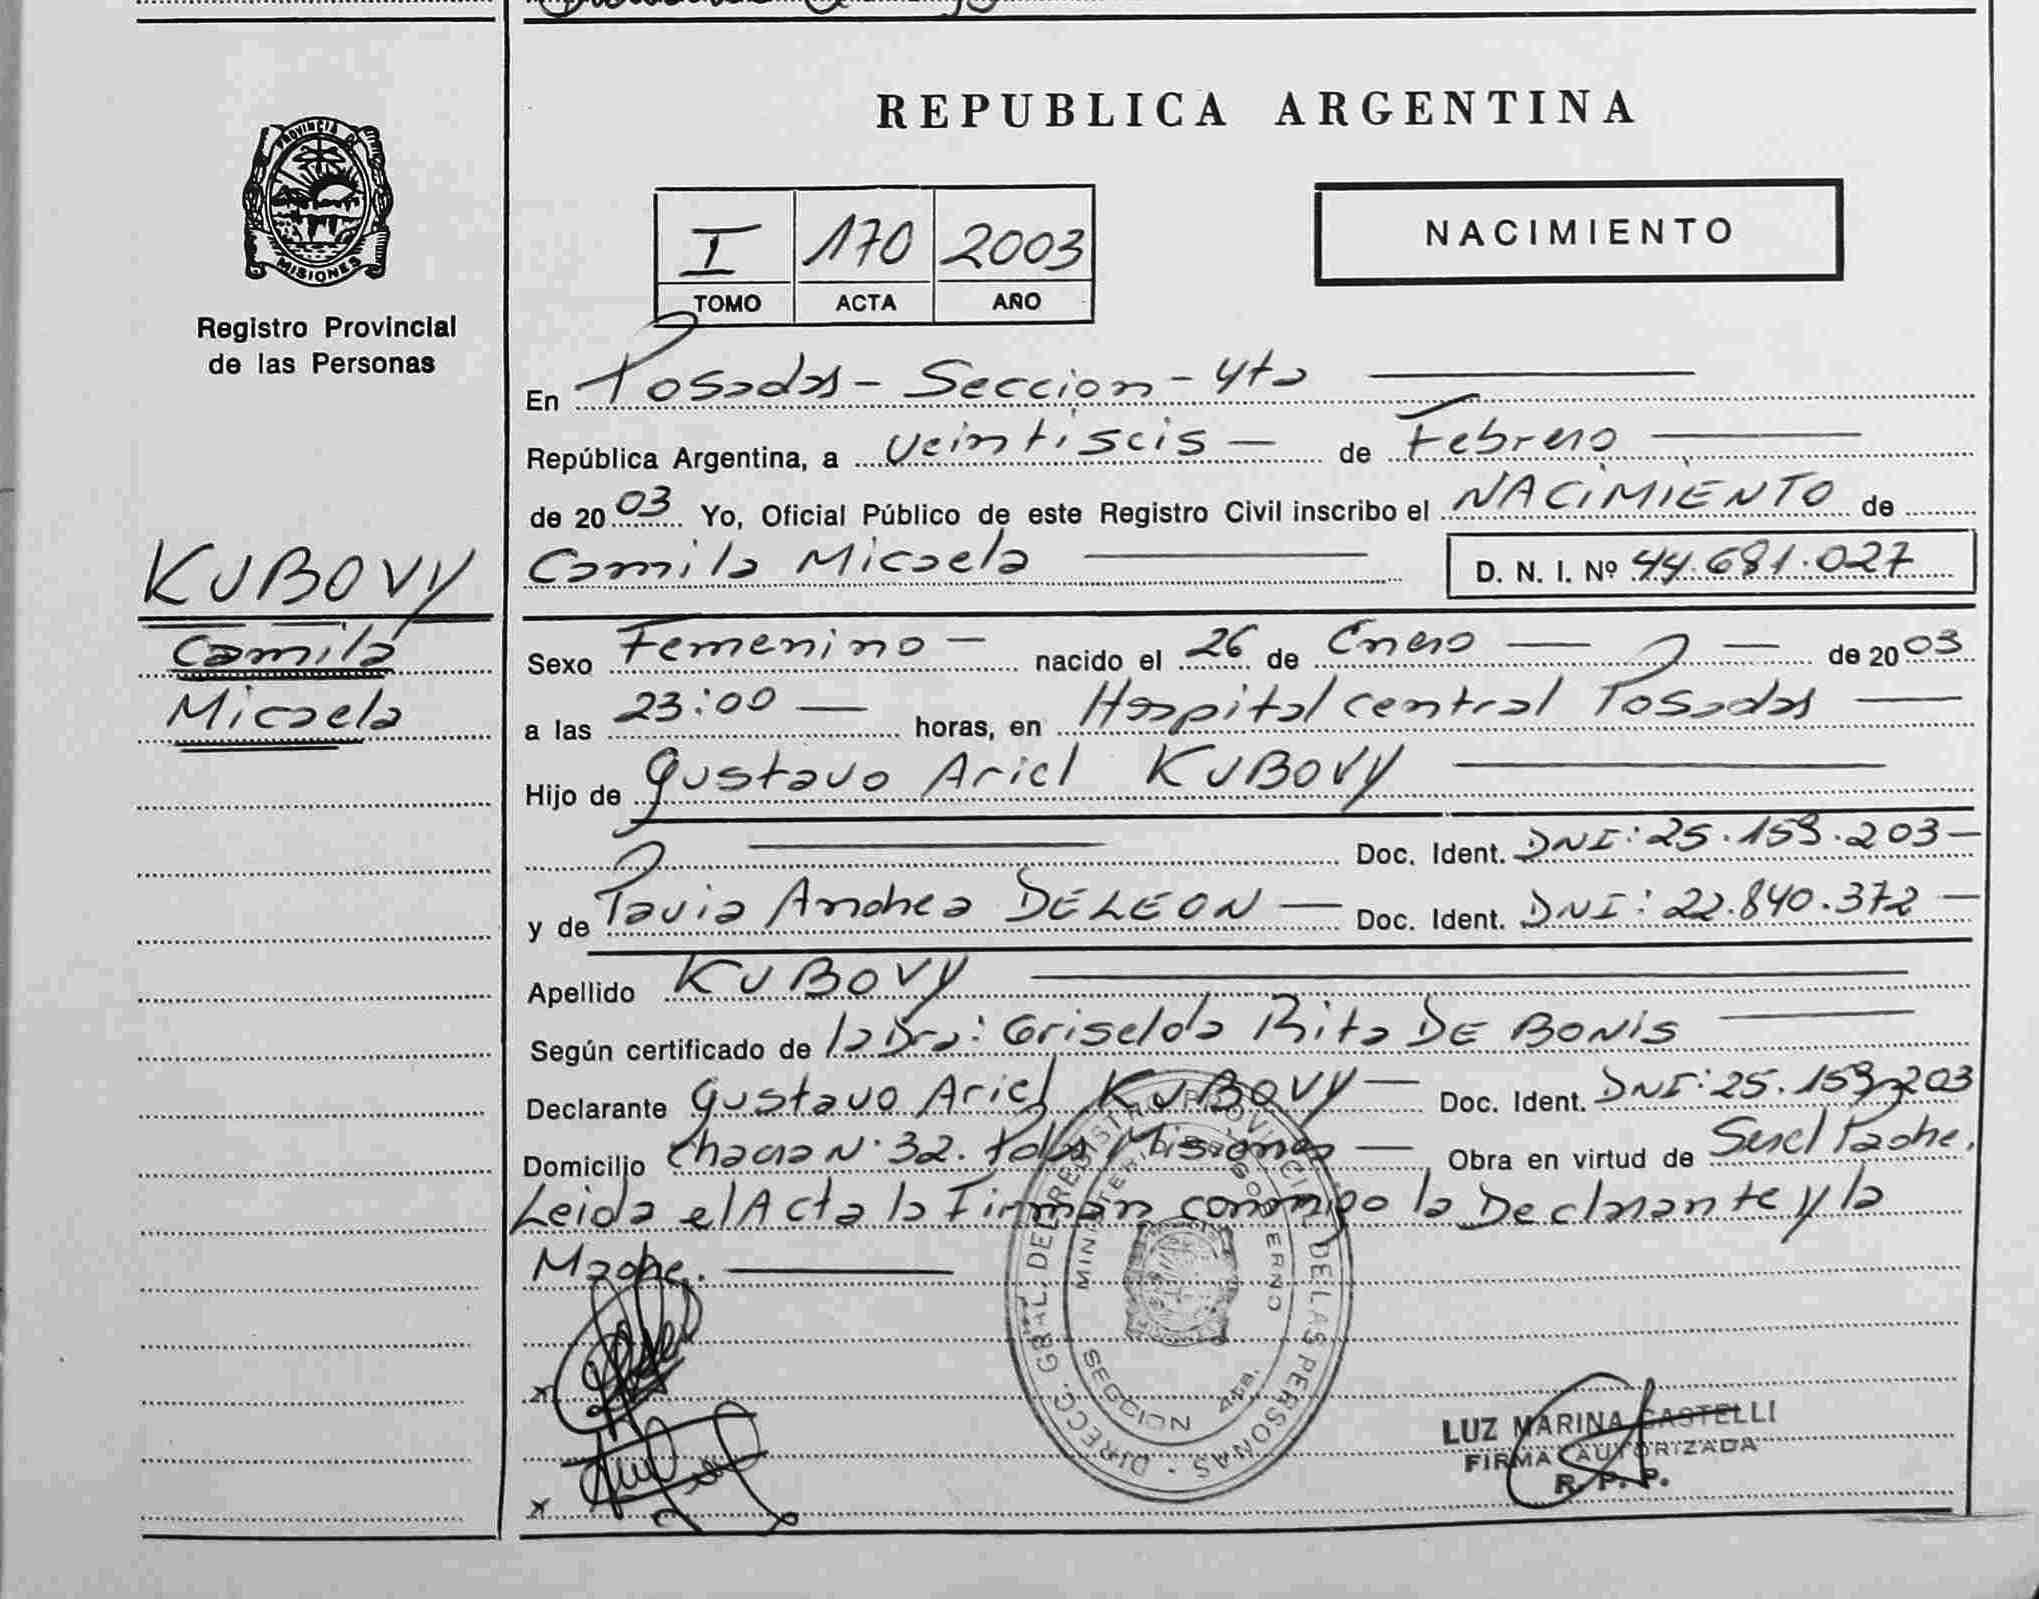 PROVINCIA DE
MISIONES
Registro Provincial
de las Personas
KUBOVY
Camila
Micaela
REPUBLICA ARGENTINA
I 170 2003
TOMO ACTA AÑO
NACIMIENTO
En Posadas - Seccion - 4ta
República Argentina, a veintiseis - de Febrero
de 2003 Yo, Oficial Público de este Registro Civil inscribo el NACIMIENTO de
Camila Micaela D. N. I. Nº 44.681.027
Sexo Femenino - nacido el 26 de Enero de 2003
a las 23:00 horas, en Hospital central Posadas
Hijo de Gustavo Ariel KUBOVY
Doc. Ident. DNI: 25.159.203
y de Andrea DE LEON - Doc. Ident. DNI: 22.840.372
Apellido KUBOVY
Según certificado de la Dra: Griselda Rita DE BONIS
Declarante Gustavo Ariel KUBOVY - Doc. Ident. DNI: 25.159.203
Domicilio Chacra Nº 32. Pdas Misiones - Obra en virtud de Ser el Padre.
Leida el Acta la Firman conmigo la Declarante y la
Madre.
DIRECC. GRAL. DEL REGISTRO PROVINCIAL DE LAS PERSONAS
MINISTERIO DE GOBIERNO
SECCION 4ta.
LUZ MARINA CASTELLI
FIRMA AUTORIZADA
R. P. P.